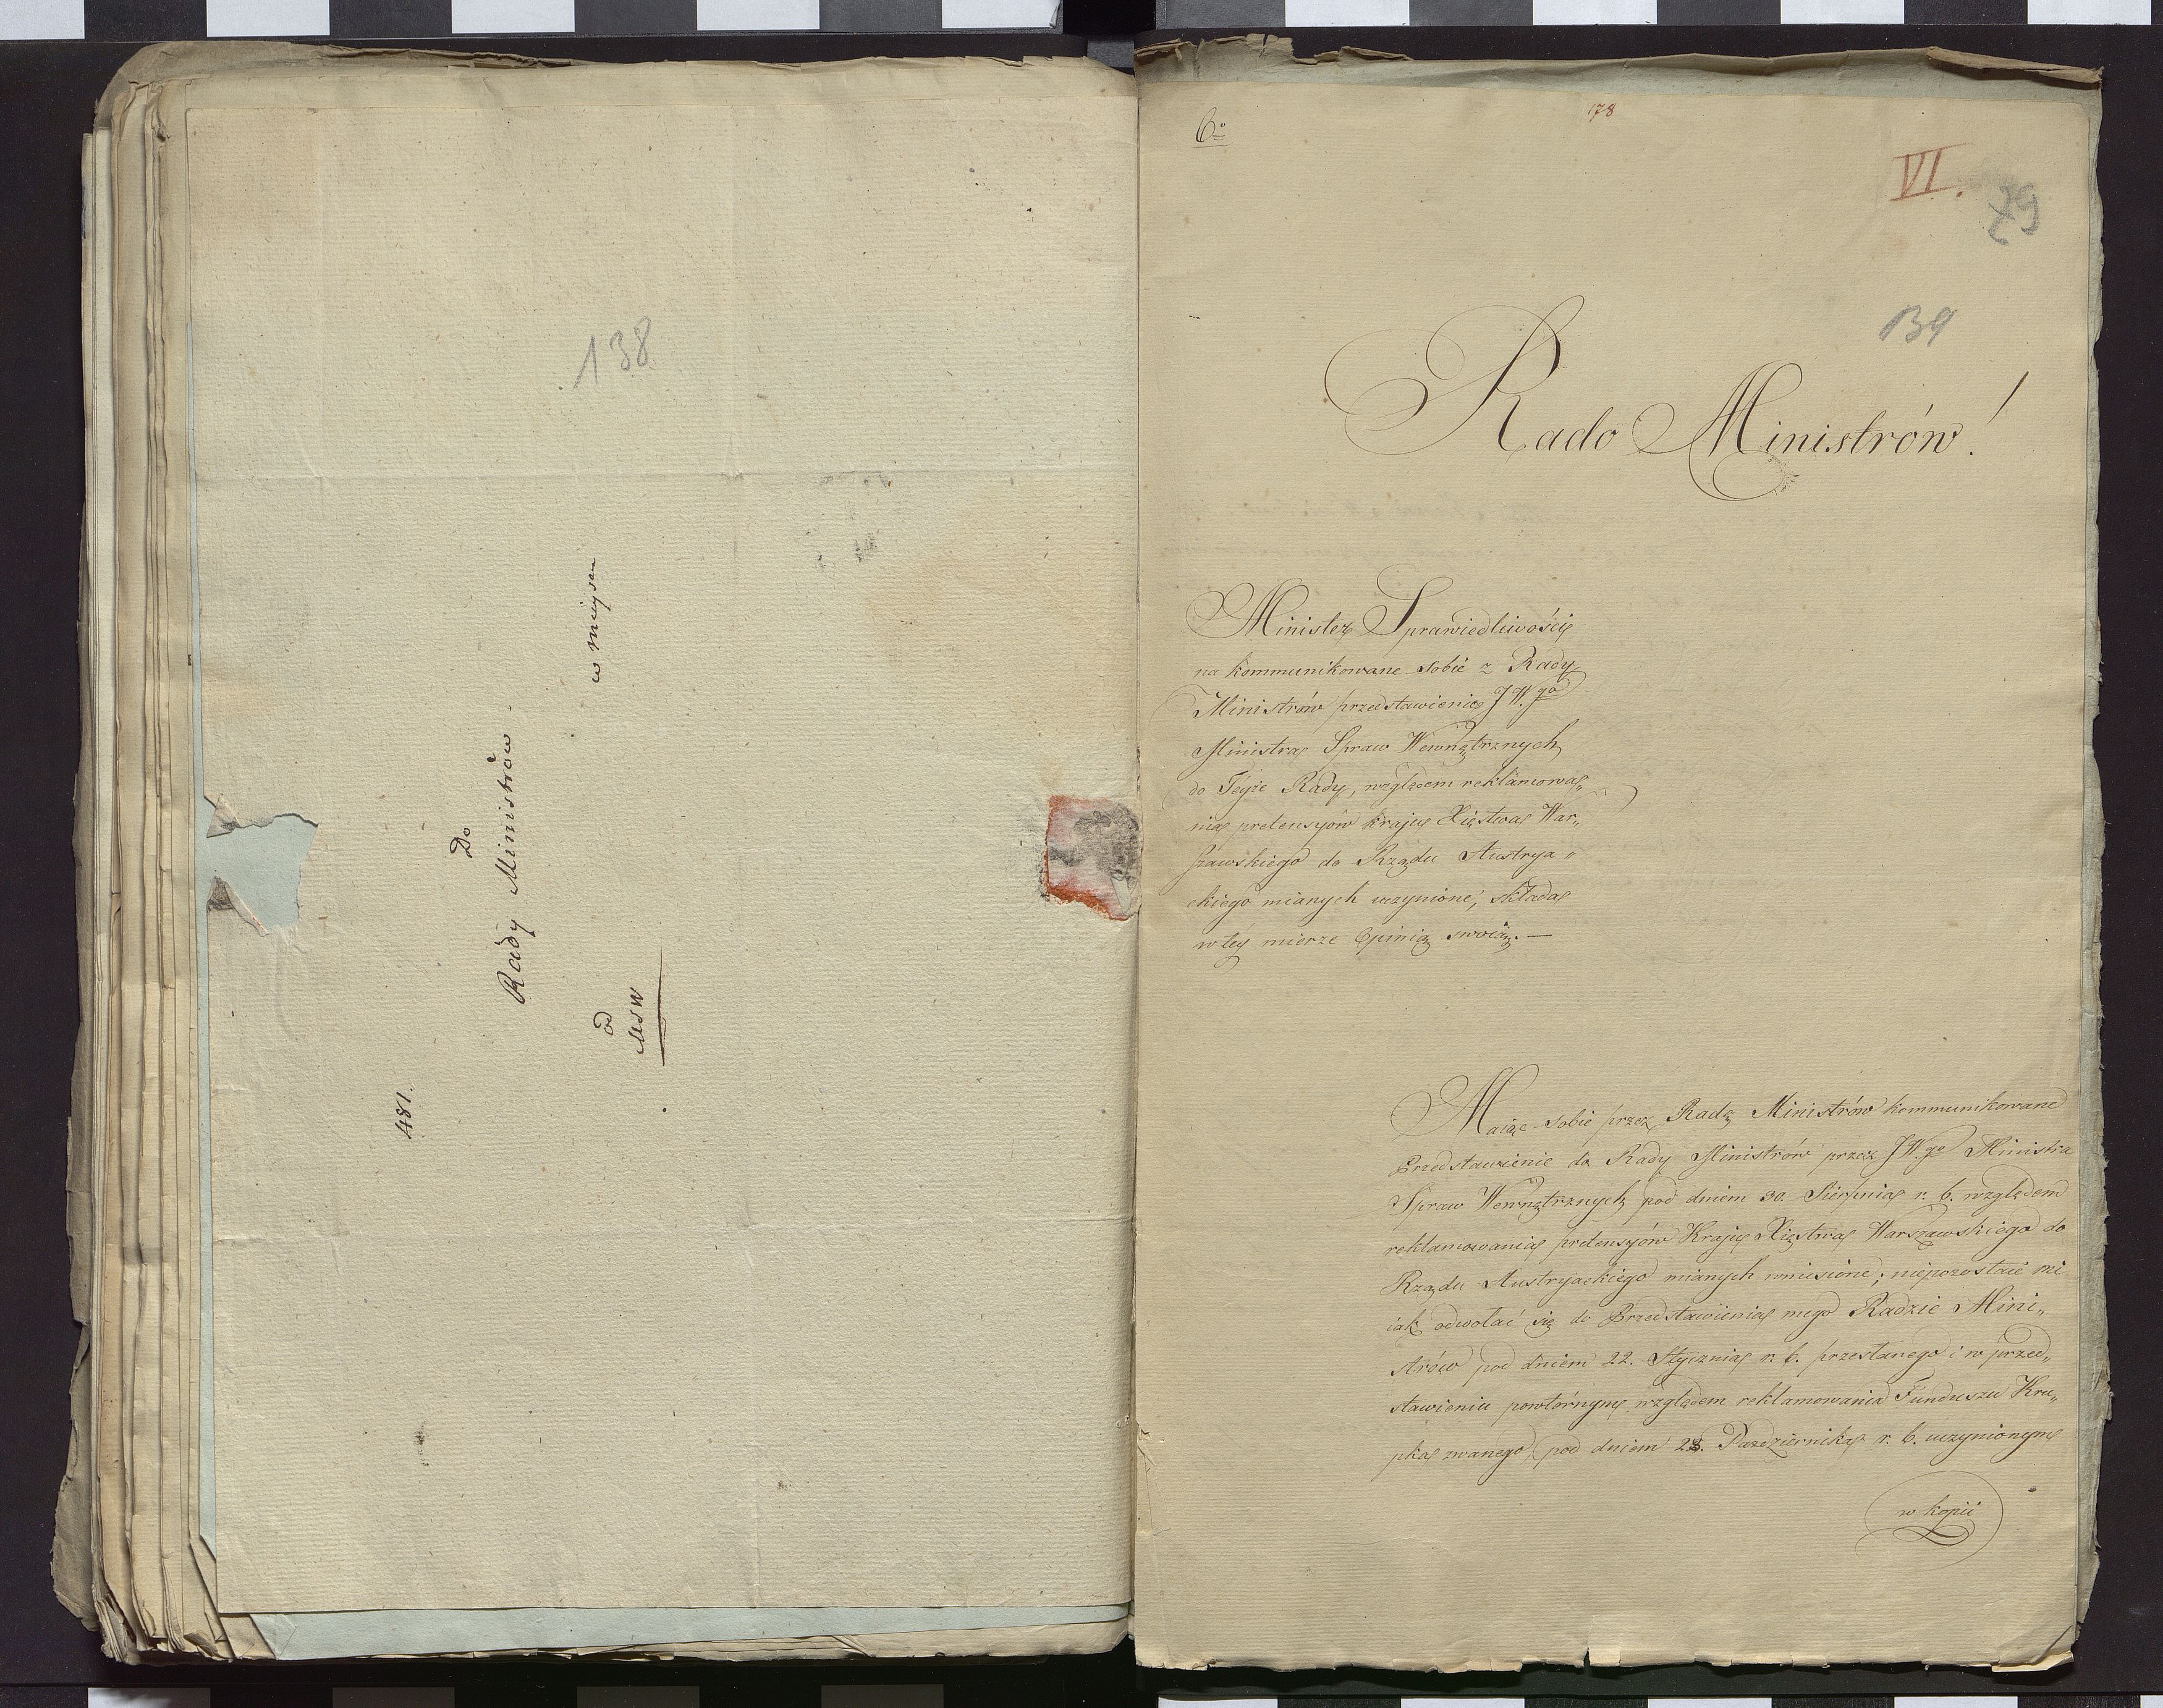 138
481.
Do
Rady Ministrów
w mieyscu
od
MSW
6º
178
VI.
79
139
Rado Ministrów!
Minister Sprawiedliwości
na kommunikowane sobie z Rady
Ministrów przedstawienie JWgo
Ministra Spraw Wewnętrznych
do Teyże Rady, względem reklamowa„
nia pretensyów kraju Xięstwa War„
szawskiego do Rządu Austrya„
ckiego mianych uczynione, składa
w tey mierze Opinią swoią. —
Maiąc sobie przez Radę Ministrów kommunikowane
Przedstawienie do Rady Ministrów przez JWgo Ministra
Spraw Wewnętrznych pod dniem 30. Sierpnia r. b. względem
reklamowania pretensyów Kraju Xięstwa Warszawskiego do
Rządu Austryackiego mianych wniesione; niepozostaie mi
iak odwołać się do Przedstawienia mego Radzie Mini„
strów pod dniem 22. Stycznia r. b. przesłanego i w przed„
stawieniu powtórnym względem reklamowania Funduszu Kru„
pka zwanego pod dniem 28. Października r. b. uczynionym
w kopii